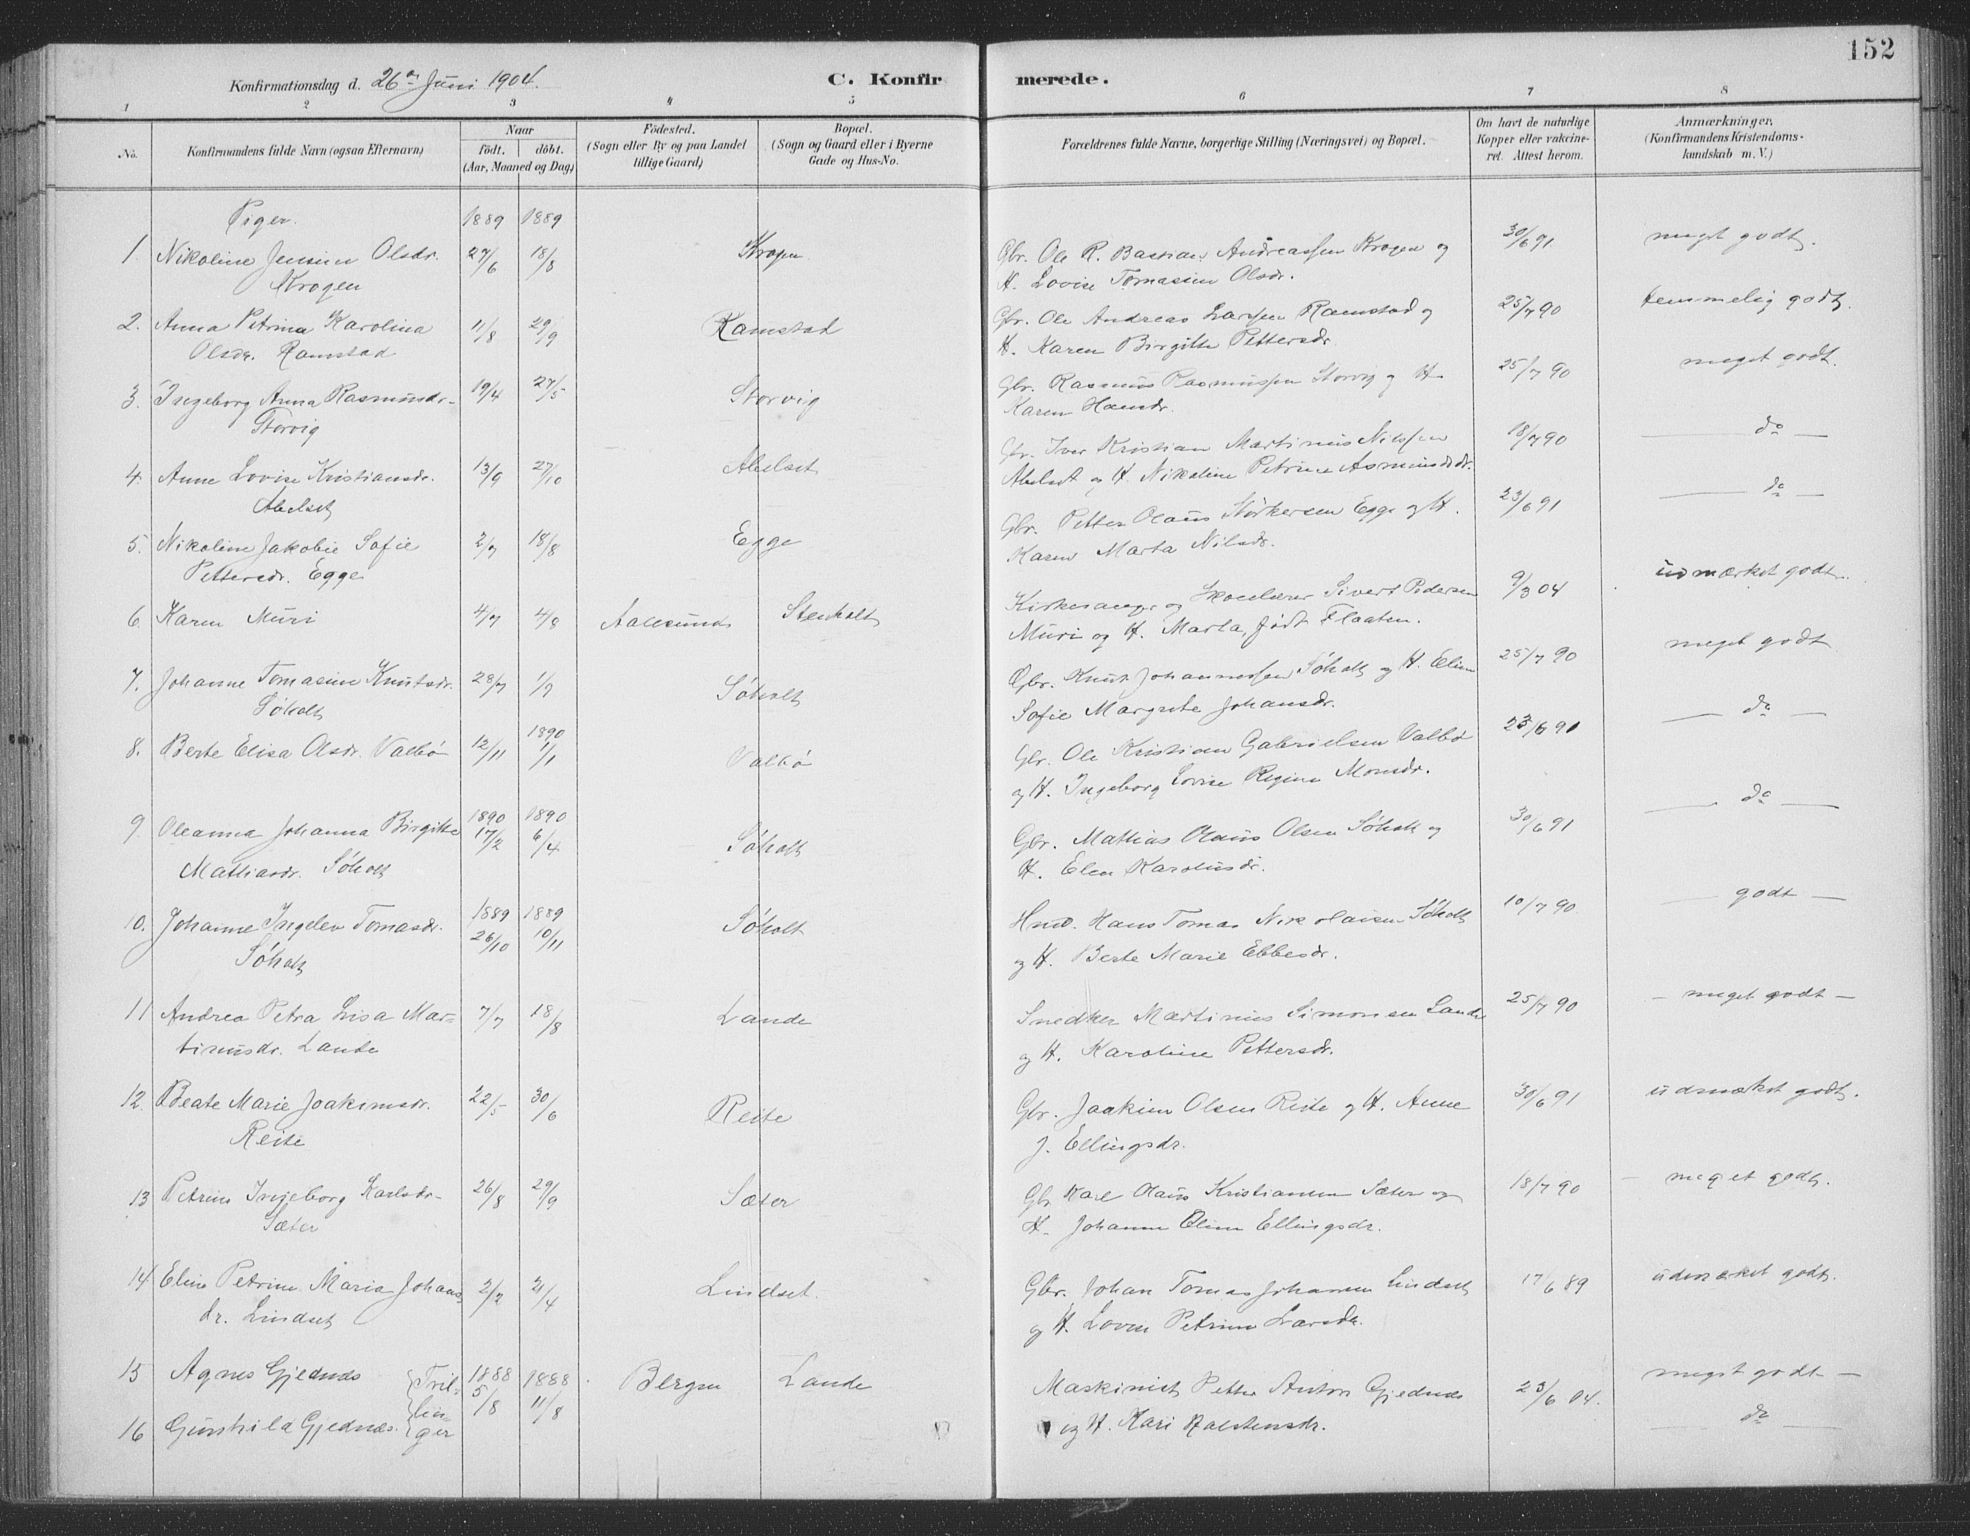 152
Konfirmationsdag d. 26de Juni 1904. C. Konfirmerede.
1 2 3 4 5 6 7 8
No. Konfirmandens fulde Navn (ogsaa Efternavn) Naar født. døbt. (Aar, Maaned og Dag) Fødested. (Sogn eller By og paa Landet tillige Gaard) Bopæl. (Sogn og Gaard eller i Byerne Gade og Hus-No. Forældrenes fulde Navne, borgerlige Stilling (Næringsvei) og Bopæl. Om havt de naturlige Kopper eller vakcineret. Attest herom. Anmærkninger. (Konfirmandens Kristendomskundskab m. V.)
Piger. 1889 1889
1. Nikoline Jensine Olsdr. 27/6 18/8 Krogen Gbr. Ole R. Bastian Andreassen Krogen og 30/6 91 meget godt.
Krogen H. Lovise Tomasine Olsdr.
2. Anna Petrina Karolina 11/8 29/9 Ramstad Gbr. Ole Andreas Larssen Ramstad og 25/7 90 temmelig godt.
Olsdr. Ramstad H. Karen Birgitte Pettersdr.
3. Ingeborg Anna Rasmusdr. 19/4 27/5 Storvig Gbr. Rasmus Rasmussen Storvig og H. 25/7 90 meget godt.
Storvig Karen Hansdr.
4. Anne Lovise Kristiansdr. 13/9 27/10 Abelset Gbr. Iver Kristian Martinus Nilssen 18/7 90 — do —
Abelset Abelset og H. Nikoline Petrine Asmundsdr.
5. Nikoline Jakobie Sofie 2/7 18/8 Egge Gbr. Petter Olaus Størkersen Egge og H. 23/6 91 — do —
Pettersdr. Egge Karen Marta Nilsdr.
6. Karen Muri 4/7 4/8 Aalesund Stenholt Kirkesanger og Skolelærer Sivert Pedersen 9/3 04 udmærket godt.
Muri og H. Marta, født Flaaten.
7. Johanne Tomasine Knutsdr. 28/7 1/9 Søholt Gbr. Knut Johannessen Søholt og H. Eline 25/7 90 meget godt
Søholt Sofie Margrete Johansdr.
1890
8. Berte Elisa Olsdr. Valbø 12/11 1/1 Valbø Gbr. Ole Kristian Gabrielsen Valbø 23/6 91 — do —
og H. Ingeborg Lovise Regine Monsdr.
1890 1890
9. Oleanna Johanna Birgitte 17/2 6/4 Søholt Gbr. Mathias Olaus Olsen Søholt og 30/6 91 — do —
Mathiasdr. Søholt H. Elen Karolusdr.
1889 1889
10. Johanne Ingelev Tomasdr. 26/10 10/11 Søholt Hmd. Hans Tomas Nikolaisen Søholt 10/7 90 — godt —
Søholt og H. Berte Marie Ebbesdr.
11 Andrea Petra Lisa Mar= 7/7 18/8 Lande Snedker Martinus Simonsen Lande 25/7 90 — meget godt —
tinusdr. Lande og H. Karoline Pettersdr.
12. Beate Marie Joakimsdr. 22/5 30/6 Reite Gbr. Joakim Olsen Reite og H. Anne 30/6 91 udmærket godt.
Reite J. Ellingsdr.
13 Petrine Ingeborg Karlsdr. 26/8 29/9 Sæter Gbr. Karl Olaus Kristiansen Sæter og 18/7 90 — meget godt.
Sæter H. Johanne Oline Ellingsdr.
14 Eline Petrine Maria Johans 2/2 21/4 Lindset. Gbr. Johan Tomas Johansen Lindset 17/6 89 udmærket godt.
dr. Lindset og H. Lovise Petrine Larsdr.
15 Agnes Gjednæs {Tvil= 1888 5/8 1888 11/8 Bergen Lande Maskinist Petter Anton Gjednæs 23/6 04. meget godt —
16 Gunhild Gjednæs. lin= ger og H. Kari Halstensdr. — do —